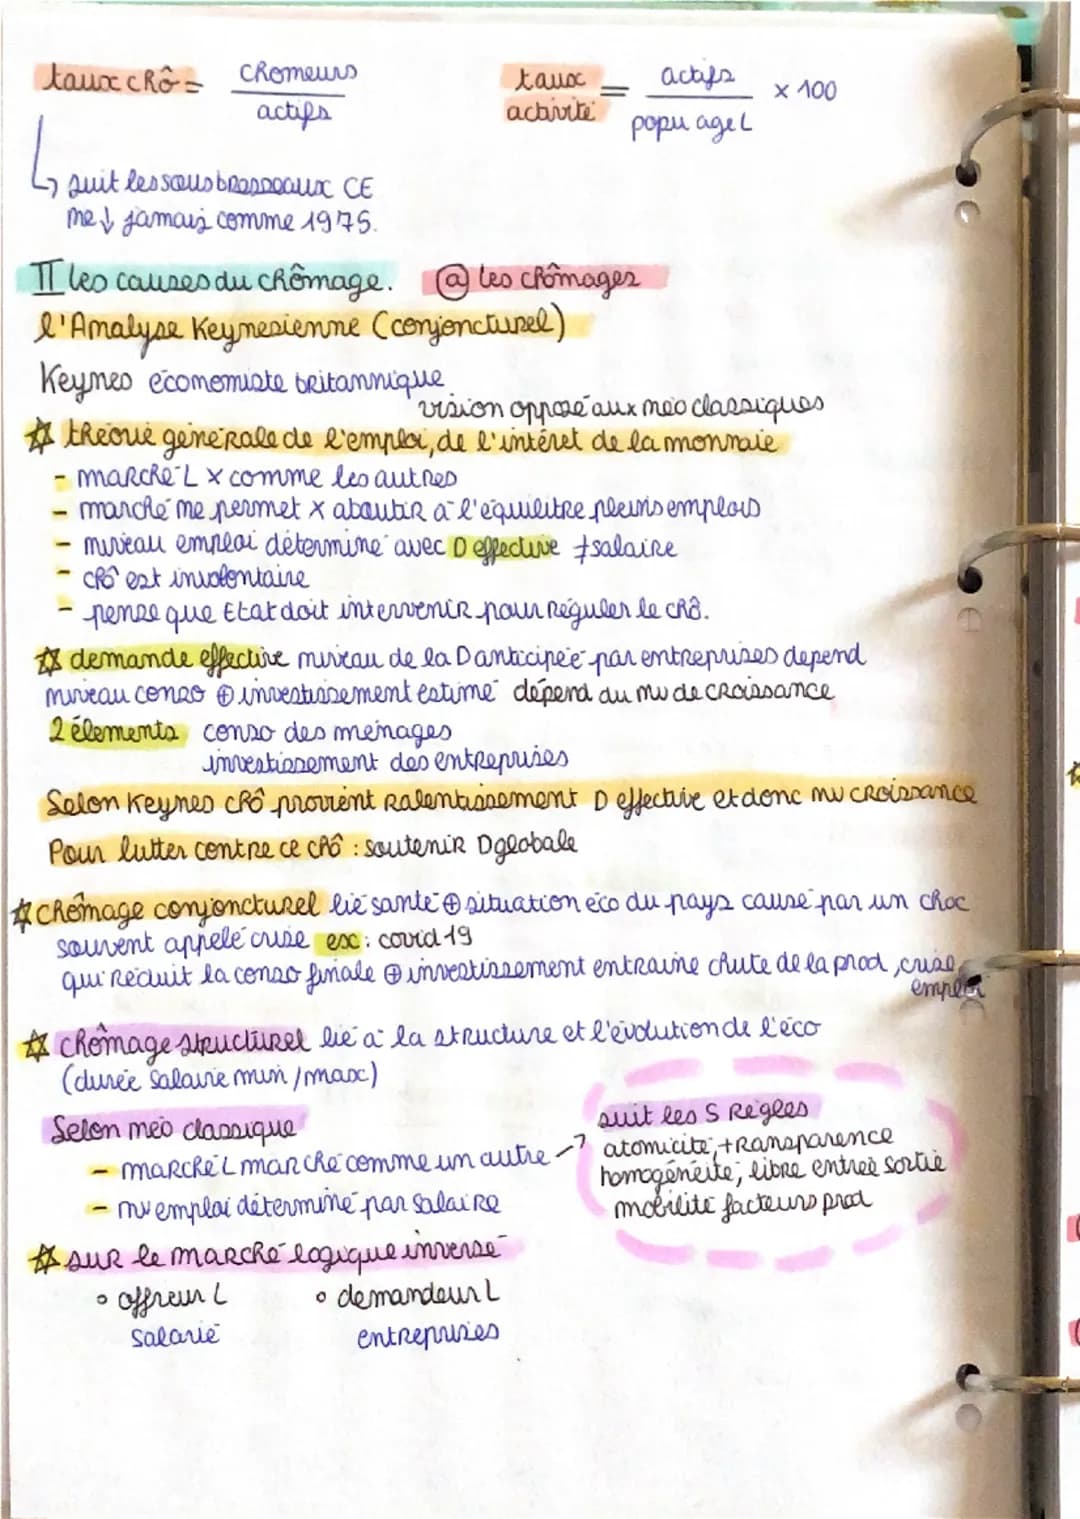 taux chô = chomeurs / actifs
taux activité = actifs / popu age L × 100
↳ suit les soubresseaux CE
ne ↓ jamais comme 1975.
II les causes du chômage. @ les chômages
l'Analyse Keynesienne (conjoncturel)
Keynes économiste britannique
vision opposé aux néo classiques
☆ théorie générale de l'emploi, de l'intéret de la monnaie
- marché L × comme les autres
- marché ne permet × aboutir à l'équilibre pleins emplois
- niveau emploi déterminé avec D effective ≠ salaire
- chô est involontaire
- pense que Etat doit intervenir pour réguler le chô.
☆ demande effective niveau de la D anticipée par entreprises depend
niveau conso ⊕ investissement estimé dépend du nv de croissance
2 élements conso des ménages
investissement des entreprises
Selon Keynes chô provient ralentissement D effective et donc nv croissance
Pour lutter contre ce chô : soutenir D globale
☆ chômage conjoncturel lié santé ⊕ situation éco du pays causé par un choc
souvent appelé crise ex : covid 19
qui réduit la conso finale ⊕ investissement entraine chute de la prod, crise
emploi
☆ chômage structurel lié à la structure et l'évolution de l'éco
(durée salaire min / max)
Selon néo classique
- marché L marché comme un autre →
- nv emploi déterminé par salaire
suit les 5 règles
atomicité, transparence
homogénéité, libre entrée sortie
mobilité facteurs prod
☆ sur le marché logique inversé
∘ offreur L ∘ demandeur L
salarié entreprises